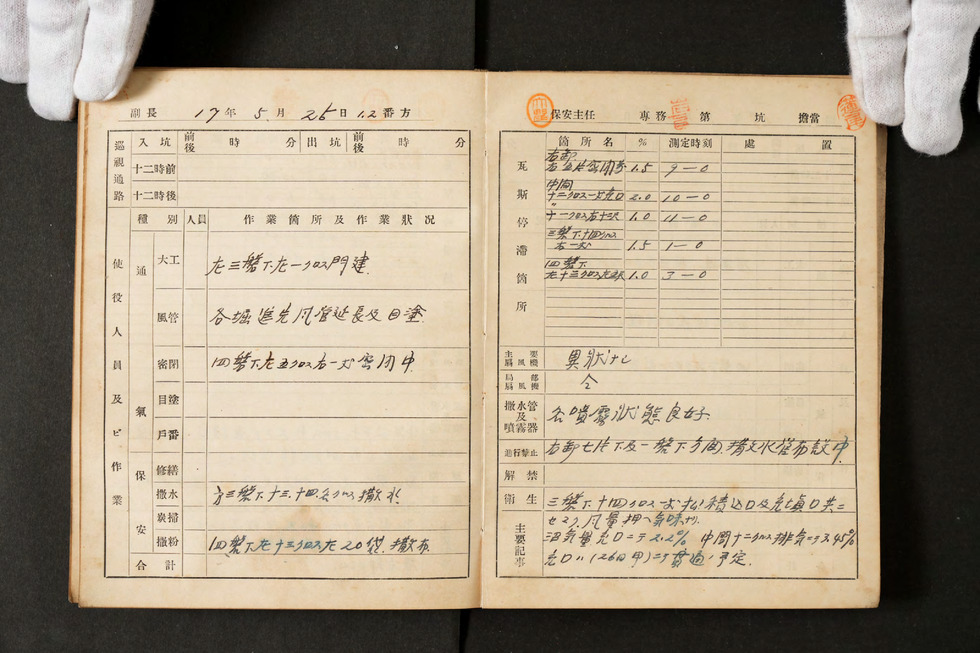 副長 17年 5月 25日 1.2番方
巡視通路
入坑 前後 時 分 出坑 前後 時 分
十二時前
十二時後
使役人員及ビ作業
種別 人員 作業箇所及作業狀況
通氣
大工 左三盤下左一クロス門建
風管 各堀進先風管延長及目塗
密閉 四盤下左五クロス右一片密閉中
目塗
戶番
保安
修繕
撒水 三盤下十三.十四クロス撒水
炭掃
撒粉 四盤下左十三クロス左20袋撒布
合計
保安主任 專務 第 坑 擔當
瓦斯停滯箇所
箇所名 % 測定時刻 處置
右卸
1.5 9—0
中間
十二クロス 2.0 10—0
十一クロス右 1.0 11—0
三盤下十四クロス
右一片 1.5 1—0
四盤下
左十三クロス 1.0 3—0
主要扇風機 異狀ナし
局部扇風機 仝
撒水管及噴霧器 各噴霧狀態良好
進行禁止 右卸七片下及二盤下方面 撒水管布設中
解禁
衛生
主要記事
三盤下十四クロス 積込口及充填口共ニ
セマク.風量押ヘ気味ナリ.
沼気量充口ニテ2.2% 中間十二クロス排気ニテ3.45%
充口ハ(26日甲)ニテ貫通ノ予定.